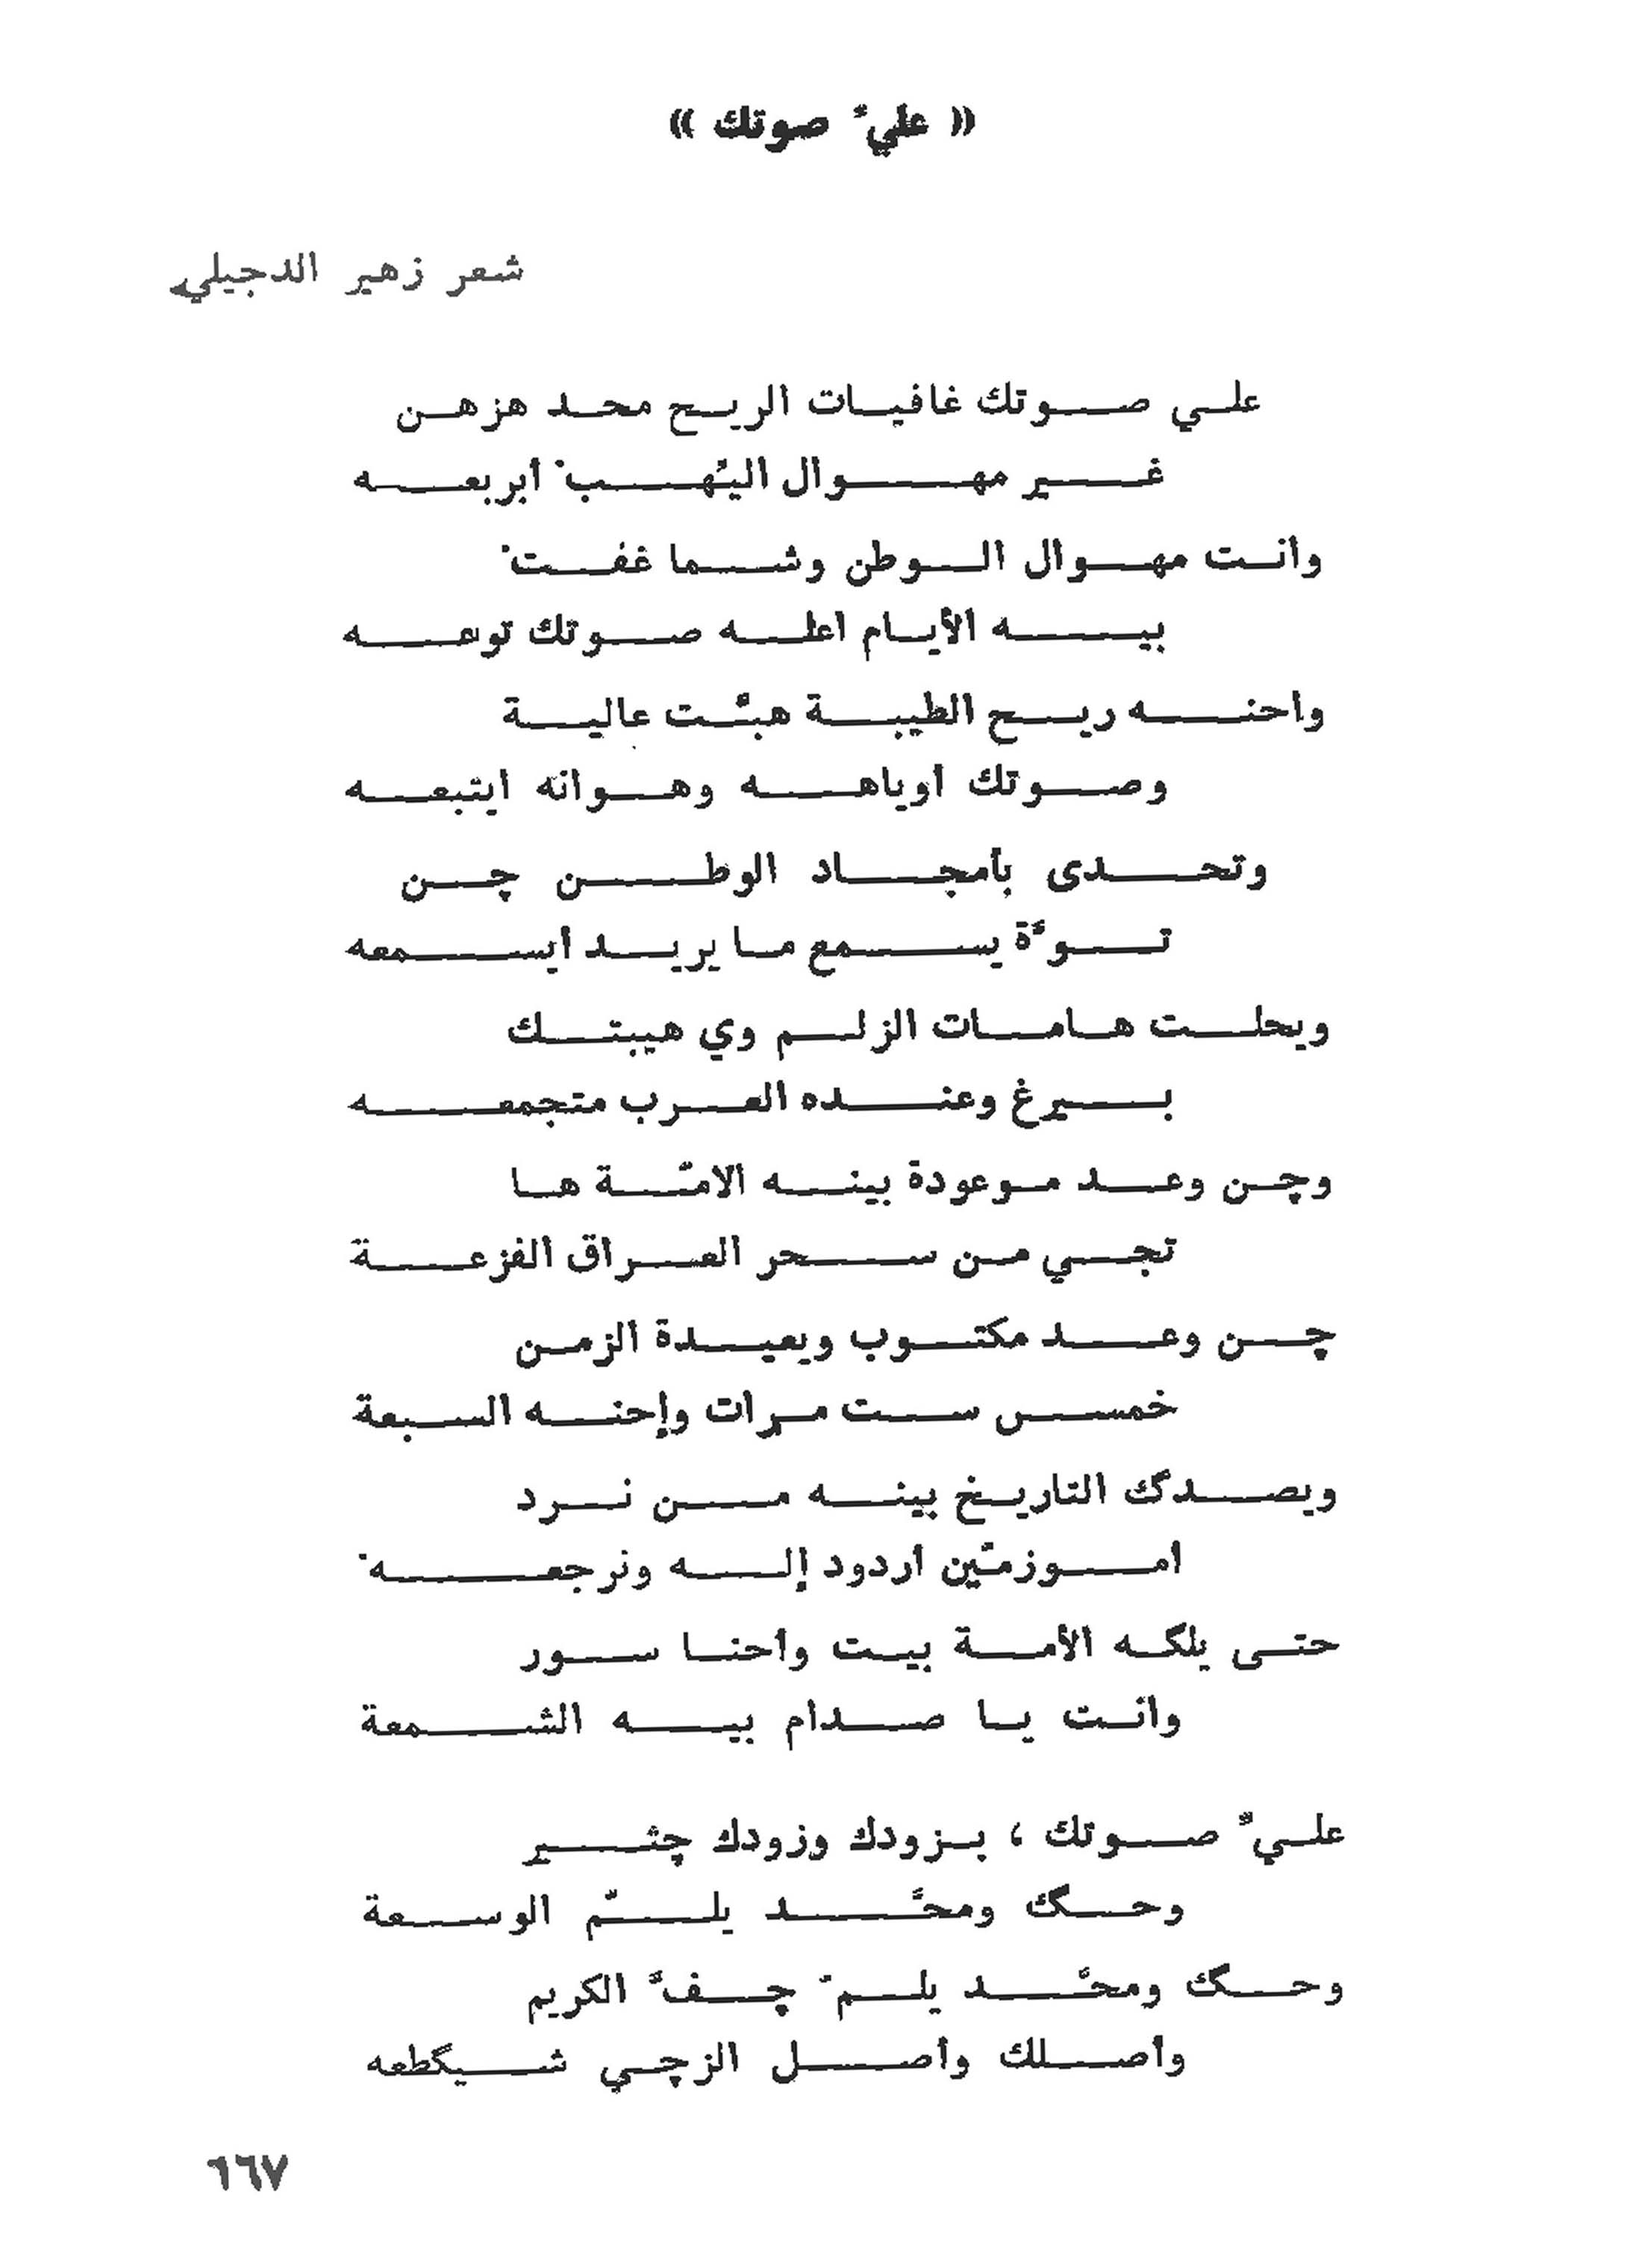 « عليّ صوتك »
شعر زهير الدجيلي
علي صوتك غافيات الريح محد هزهن
غير مهوال اليّهبّ أبربعه
وانت مهوال الوطن وشما غفتْ
بيه الأيام اعله صوتك توعه
واحنه ريح الطيبة هبّت عالية
وصوتك اوياهه وهوانه ايتبعه
وتحدى بأمجاد الوطن چن
توّة يسمع ما يريد أيسمعه
ويحلت هامات الزلم وي هيبتك
بيرغ وعنده العرب متجمعه
وچن وعد موعودة بينه الامّة ها
تجي من سحر العراق الفزعة
چن وعد مكتوب ويعيدة الزمن
خمس ست مرات وإحنه السبعة
ويصدگ التاريخ بينه من نرد
اموزمّين اردود إله ونرجعهْ
حتى يلگه الأمة بيت وأحنا سور
وانت يا صدام بيه الشمعة
عليّ صوتك ، بزودك وزودك چثير
وحگ ومحّد يلمّ الوسعة
وحگ ومحّد يلمّ چفّ الكريم
وأصلك وأصل الزچي شيگطعه
١٦٧